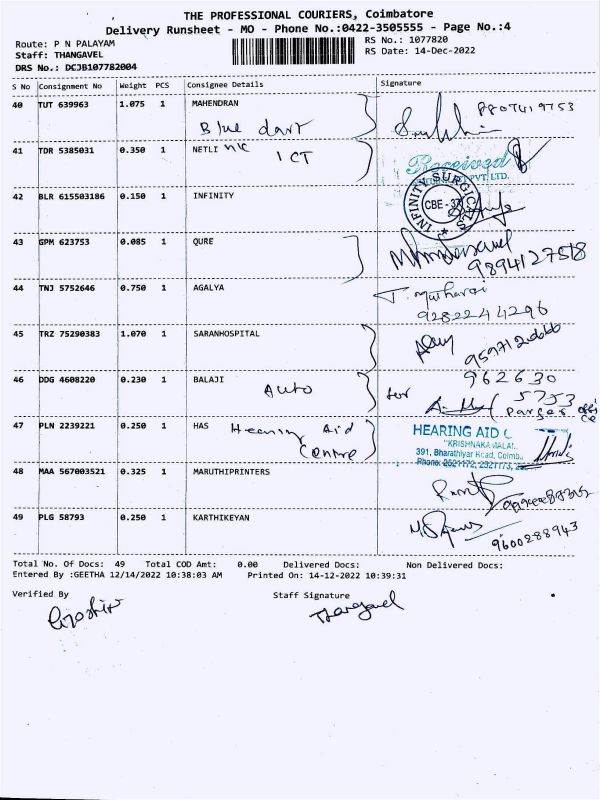 THE PROFESSIONAL COURIERS, Coimbatore
Delivery Runsheet - MO - Phone No.:0422-3505555 - Page No.:4
Route: P N PALAYAM
RS No.: 1077820
Staff: THANGAVEL
RS Date: 14-Dec-2022
DRS No.: DCJB107782004
S No Consignment No Weight PCS Consignee Details Signature
40 TUT 639963 1.075 1 MAHENDRAN
Blue dart
8807419753
41 TDR 5385031 0.350 1 NETLINK
ICT
Received
PVT. LTD.
42 BLR 615503186 0.150 1 INFINITY
INFINITY SURGICALS
CBE - 37
43 GPM 623753 0.085 1 QURE
9894127518
44 TNJ 5752646 0.750 1 AGALYA
9282244296
45 TRZ 75290383 1.070 1 SARANHOSPITAL
46 DDG 4608220 0.230 1 BALAJI
Auto
for
962630
5753
47 PLN 2239221 0.250 1 HAS
Hearing Aid
Centre
HEARING AID C
391, Bharathiyar Road, Coimb
Phone: 2521172, 2321173, 2
48 MAA 567003521 0.325 1 MARUTHIPRINTERS
49 PLG 58793 0.250 1 KARTHIKEYAN
9600288943
Total No. Of Docs: 49 Total COD Amt: 0.00 Delivered Docs: Non Delivered Docs:
Entered By :GEETHA 12/14/2022 10:38:03 AM Printed On: 14-12-2022 10:39:31
Verified By
Staff Signature
Thangavel